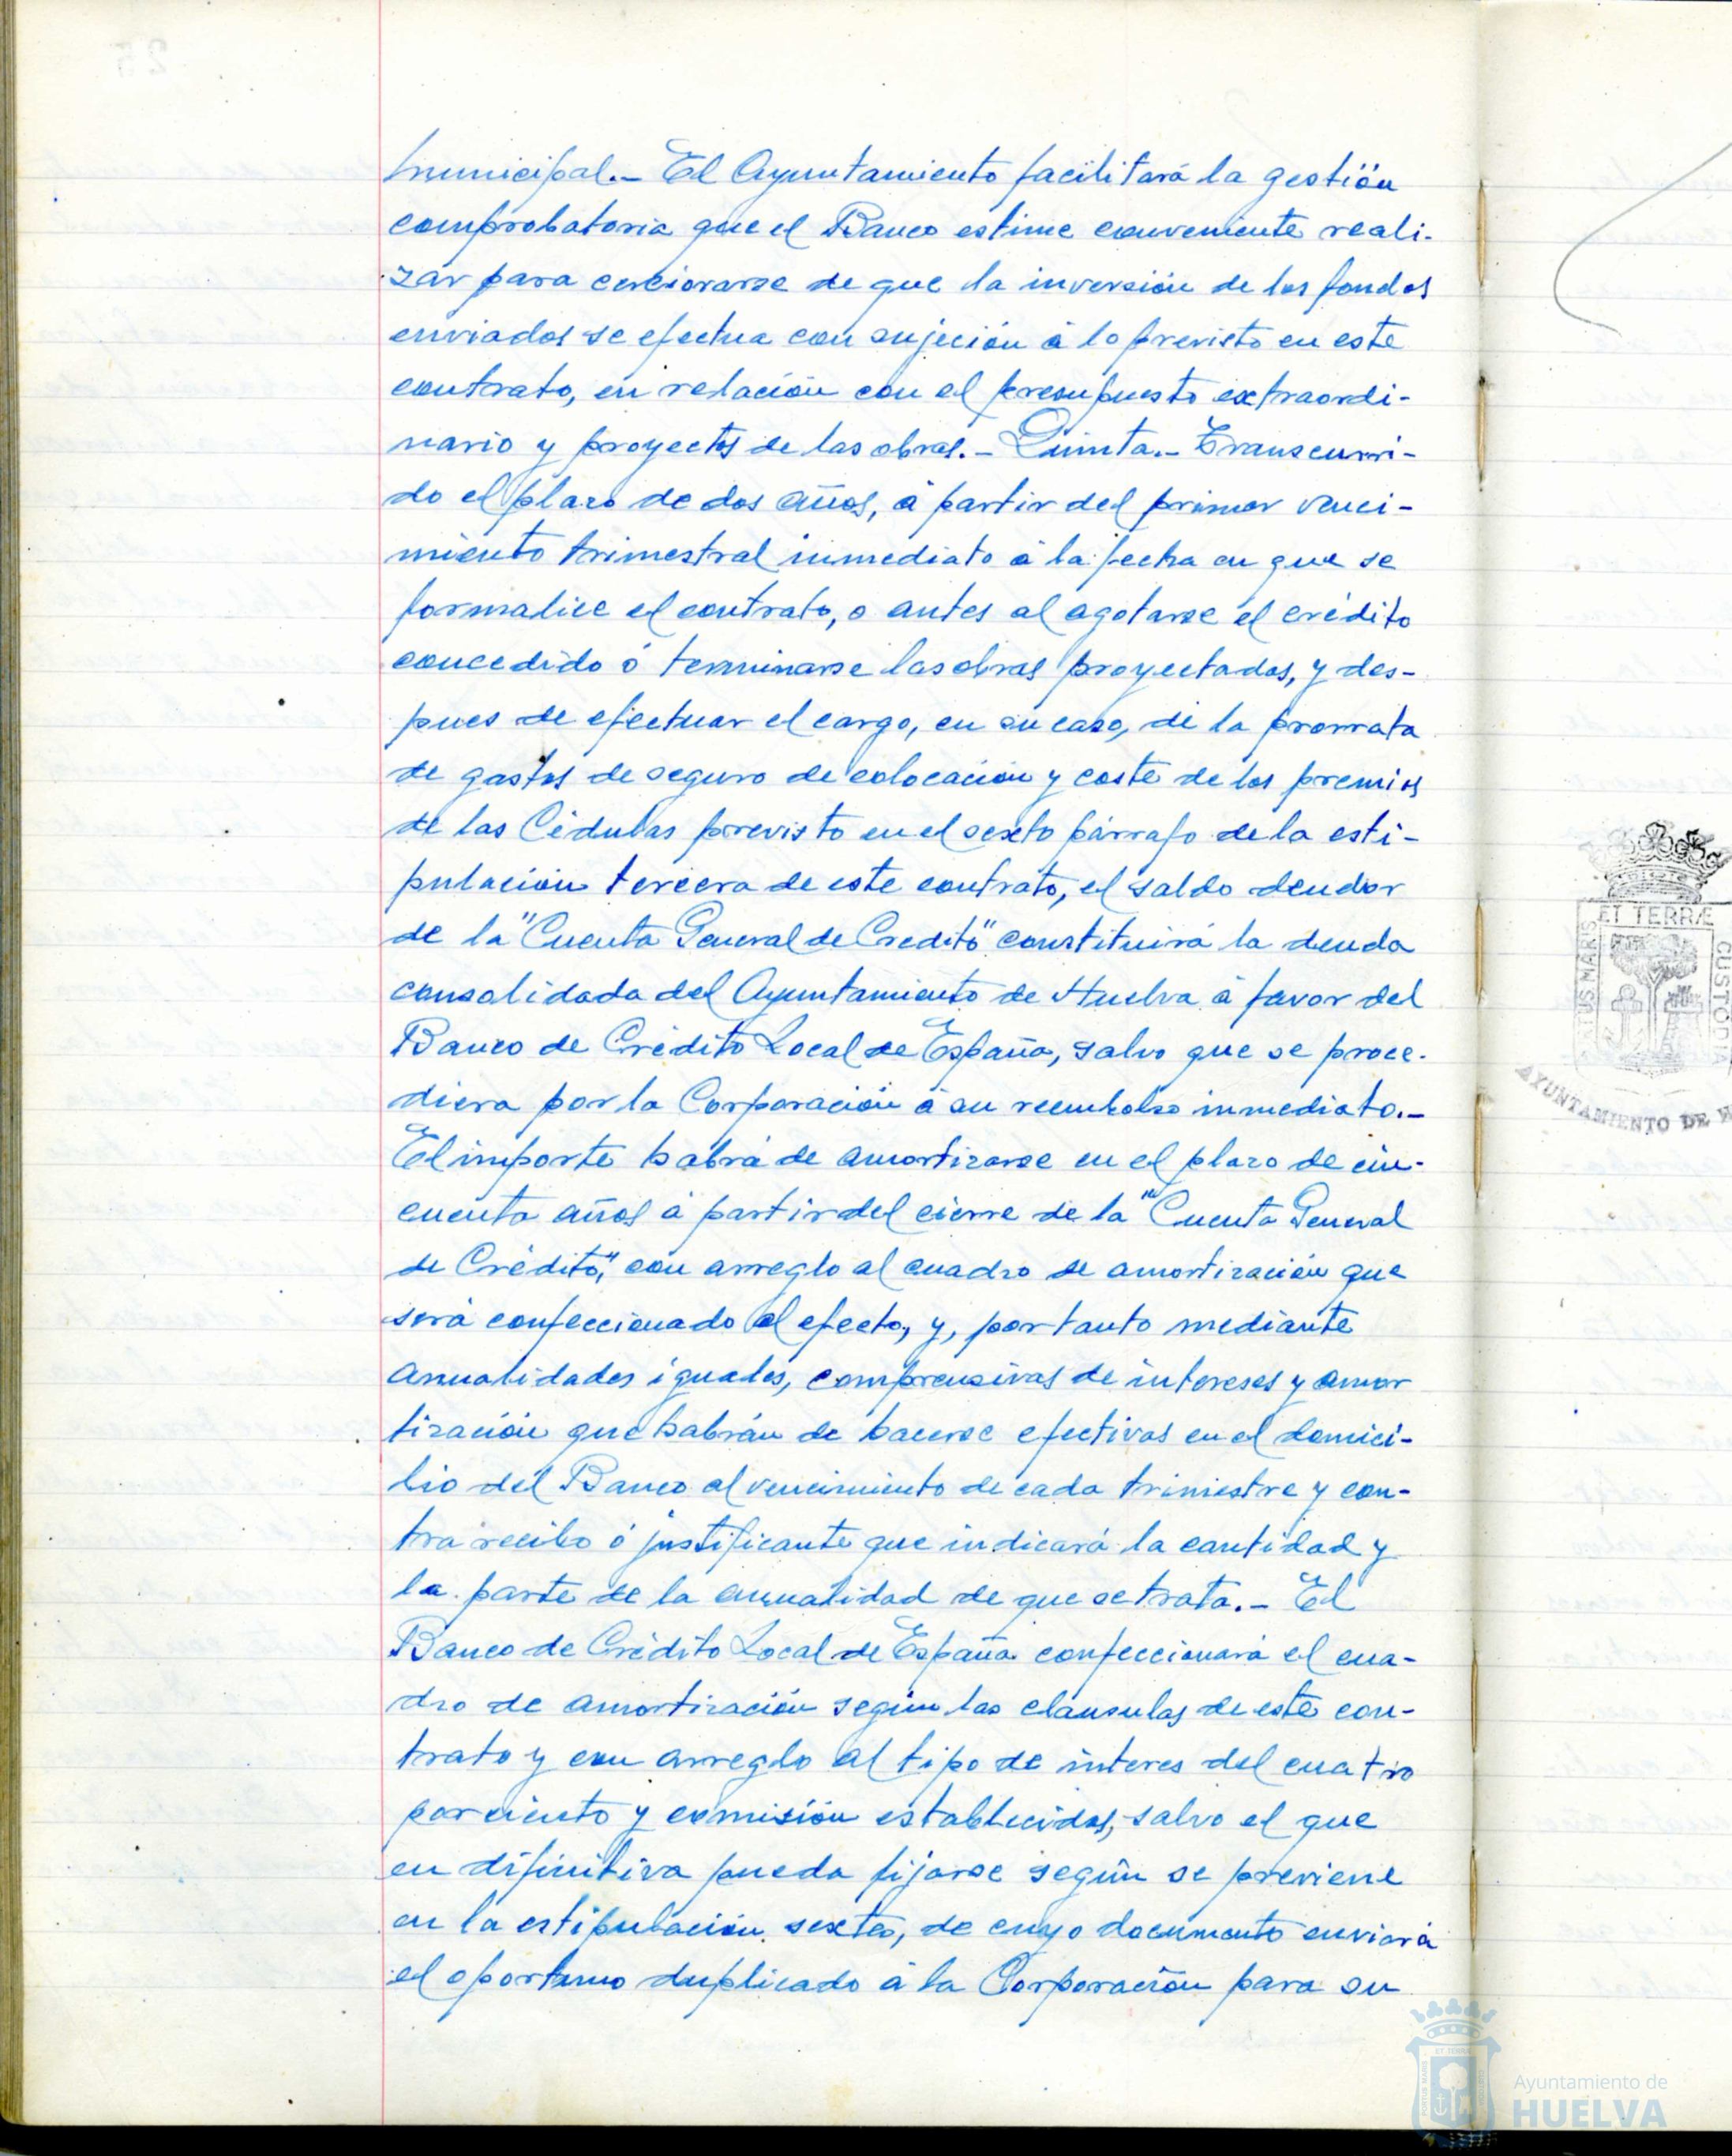 municipal.- El Ayuntamiento facilitará la gestión
comprobatoria que el Banco estime conveniente reali-
zar para cerciorarse de que la inversión de los fondos
enviados se efectua con sujeción á lo previsto en este
contrato, en relación con el presupuesto extraordi-
nario y proyectos de las obras.- Quinta.- Transcurri-
do el plazo de dos años, á partir del primer venci-
miento trimestral inmediato á la fecha en que se
formalice el contrato, o antes al agotarse el crédito
concedido ó terminarse las obras proyectadas, y des-
pues de efectuar el cargo, en su caso, de la prorrata
de gastos de seguro de colocación y coste de los premios
de las Cédulas previsto en el sexto párrafo de la esti-
pulación tercera de este contrato, el saldo deudor
de la "Cuenta General de Credito" constituirá la deuda
consolidada del Ayuntamiento de Huelva á favor del
Banco de Crédito Local de España, salvo que se proce-
diera por la Corporación á su reembolso inmediato.-
El importe habrá de amortizarse en el plazo de cin-
cuenta años á partir del cierre de la "Cuenta General
de Crédito", con arreglo al cuadro de amortización que
será confeccionado al efecto, y, por tanto mediante
anualidades iguales, comprensivas de intereses y amor
tización que habrán de hacerse efectivas en el domici-
lio del Banco al vencimiento de cada trimestre y con-
tra recibo ó justificante que indicará la cantidad y
la parte de la anualidad de que se trata.- El
Banco de Crédito Local de España confeccionará el cua-
dro de amortización según las clausulas de este con-
trato y con arreglo al tipo de interes del cuatro
por ciento y comisión establecidos, salvo el que
en difinitiva pueda fijarse según se previene
en la estipulación sexta, de cuyo documento enviará
el oportuno duplicado á la Corporación para su
ET TERRÆ
CUSTODIA
AYUNTAMIENTO DE H
Ayuntamiento de
HUELVA